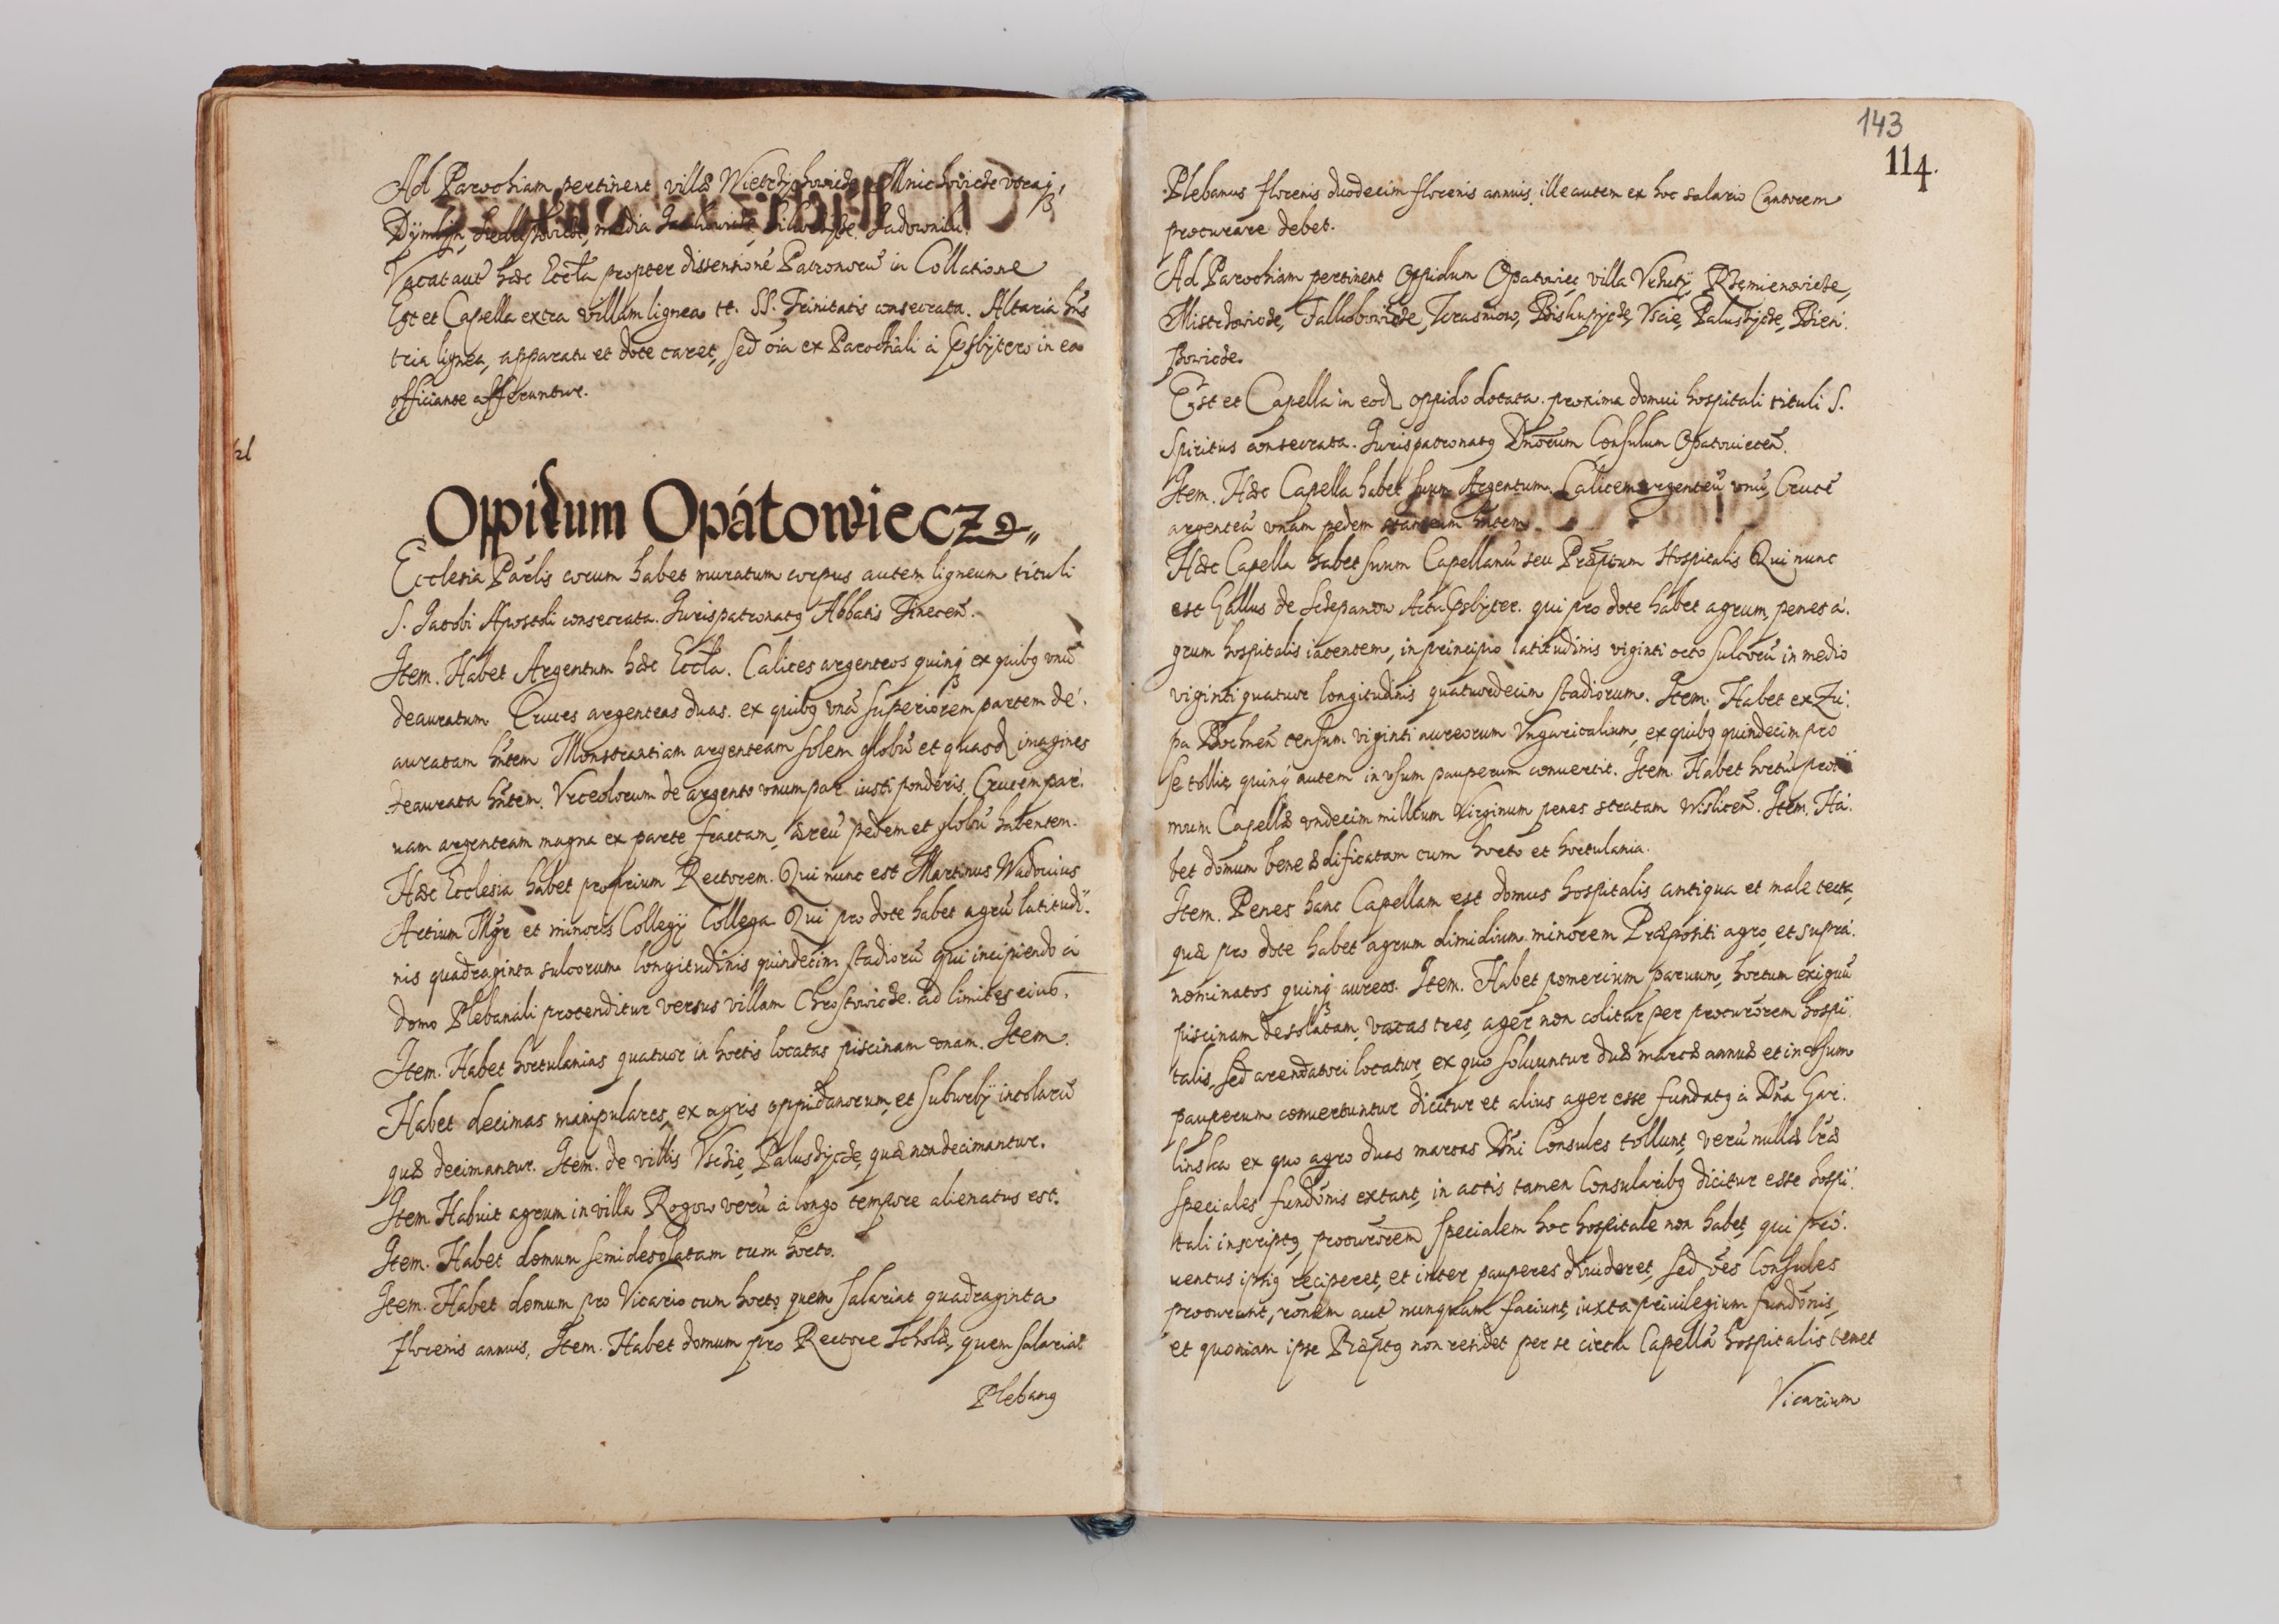 Ad Parochiam pertinent villæ Wietrzychowicze Mnichowicze utraq;
Dÿmlÿn, media Sadowniki.
Vacat aut̃ hæc Eccl̃a propter dissensionẽ Patronorũ in Collatione
Est et Capella extra villam lignea tt. SS. Trinitatis consecrata. Altaria hñs
tria lignea, apparatu et dote caret, sed oĩa ex Parochiali à Psbÿtero in ea
officiante afferuntur.
Oppidum Opátowiecz
Ecclesia Pãrlis corum habet muratum corpus autem ligneum tituli
S. Jacobi Apostoli consecrata. Jurispatronatꝯ Abbatis Tinecen̄.
Item. Habet Argentum hæc Eccl̃a. Calices argenteos quinq; ex quibꝯ vnũ
deauratum Cruces argenteas duas. ex quibꝯ vnã superiorem partem de:
auratam hñtem Monstrantiam argenteam solem globũ et quasd̃ imagines
deaurata hñtem. Vrceolorum de argento vnum par iusti ponderis, Crucem par:
uam argenteam magna ex parte fractam, æreũ pedem et globũ habentem.
Hæc Ecclesia habet proprium Rectorem. Qui nunc est Martinus Wadouius
Artium Mgr̃ et minoris Collegÿ Collega Qui pro dote habet agrũ latitudi:
nis quadraginta sulcorum longitudinis quindecim stadiorũ qui incipiendo à
domo Plebanali protenditur versus villam Chrostowicze. ad limites eius.
Item. Habet hortulanias quatuor in hortis locatas piscinam vnam. Item.
Habet decimas manipulares, ex agris oppidanorum, et suburbÿ incolarũ
quæ decimantur. Item. de villis Vsczie, Palusdzycze, quæ non decimantur.
Item Habuit agrum in villa Rogow verũ à longo tempore alienatus est.
Item. Habet domum semidesolatam cum horto.
Item. Habet domum pro Vicario cum horto quem salariat quadraginta
florenis annuis, Item. Habet domum pro Rectore Scholæ, quem salariat
Plebanꝯ
143
114.
Plebanus florenis duodecim florenis annuis, ille autem ex hoc salario Cantorem
procurare debet.
Ad Parochiam pertinent Oppidum Opatowiec, villa Vchuty, Rzemienowicze,
Mistrzowicze, Fallubowicze, Krasniow, Biskupycze, Vscie, Palusdzycze, Bien:
kowicze.
Est et Capella in eod̃ oppido dotata. proxima domui hospitali tituli S.
Spiritus consecrata. Jurispatronatꝯ Dñorum Consulum Opatouiecen̄.
Item. Hæc Capella habet suum Argentum. Calicem argenteũ vnũ, Crucẽ
argenteã vnam pedem stanneum hñtem.
Hæc Capella habet suum Capellanũ seu Præptum Hospitalis Qui nunc
est Gallus de Sczepanow Actu Psbÿter. qui pro dote habet agrum, penes a:
grum hospitalis iacentem, in principio latitudinis viginti octo sulcorũ in medio
viginti quatuor longitudinis quatuordecim stadiorum. Item. Habet ex Zu:
pa Bochnen̄ censum viginti aureorum Vngaricalium, ex quibꝯ quindecim pro
se tollit, quinq; autem in vsum pauperum conuertit. Item. Habet hortũ proxi
mum Capellæ vndecim millium Virginum penes stratam Wislicen̄. Item. Ha:
bet domum bene ædificatam cum horto et hortulania.
Item. Penes hanc Capellam est domus hospitalis antiqua et male tecta,
quæ pro dote habet agrum dimidium minorem Præpositi agro, et supra:
nominatos quinq; aureos. Item. Habet pomerium paruum, hortum exiguũ
piscinam desolatam, vacas tres, ager non colitur per procurõrem hospi:
talis, sed arendatori locatur, ex quo soluuntur duæ marcæ annuæ et in vsum
pauperum conuertuntur dicitur et alius ager esse fundatꝯ à Dña Gar:
linska ex quo agro duas marcas Dñi Consules tollunt, verũ nullæ lr̃æ
speciales fundõnis extant, in actis tamen Consularibꝯ dicitur esse hospi:
tali inscriptꝯ, procurõrem specialem hoc hospitale non habet, qui pro:
uentus ipsiꝯ reciperet, et inter pauperes diuideret, sed oẽs Consules
procurant, rõnem aut̃ nunquam faciunt, iuxta priuilegium fundõnis,
et quoniam ipse Præptꝯ non residet per se circa Capellã hospitalis tenet
Vicarium